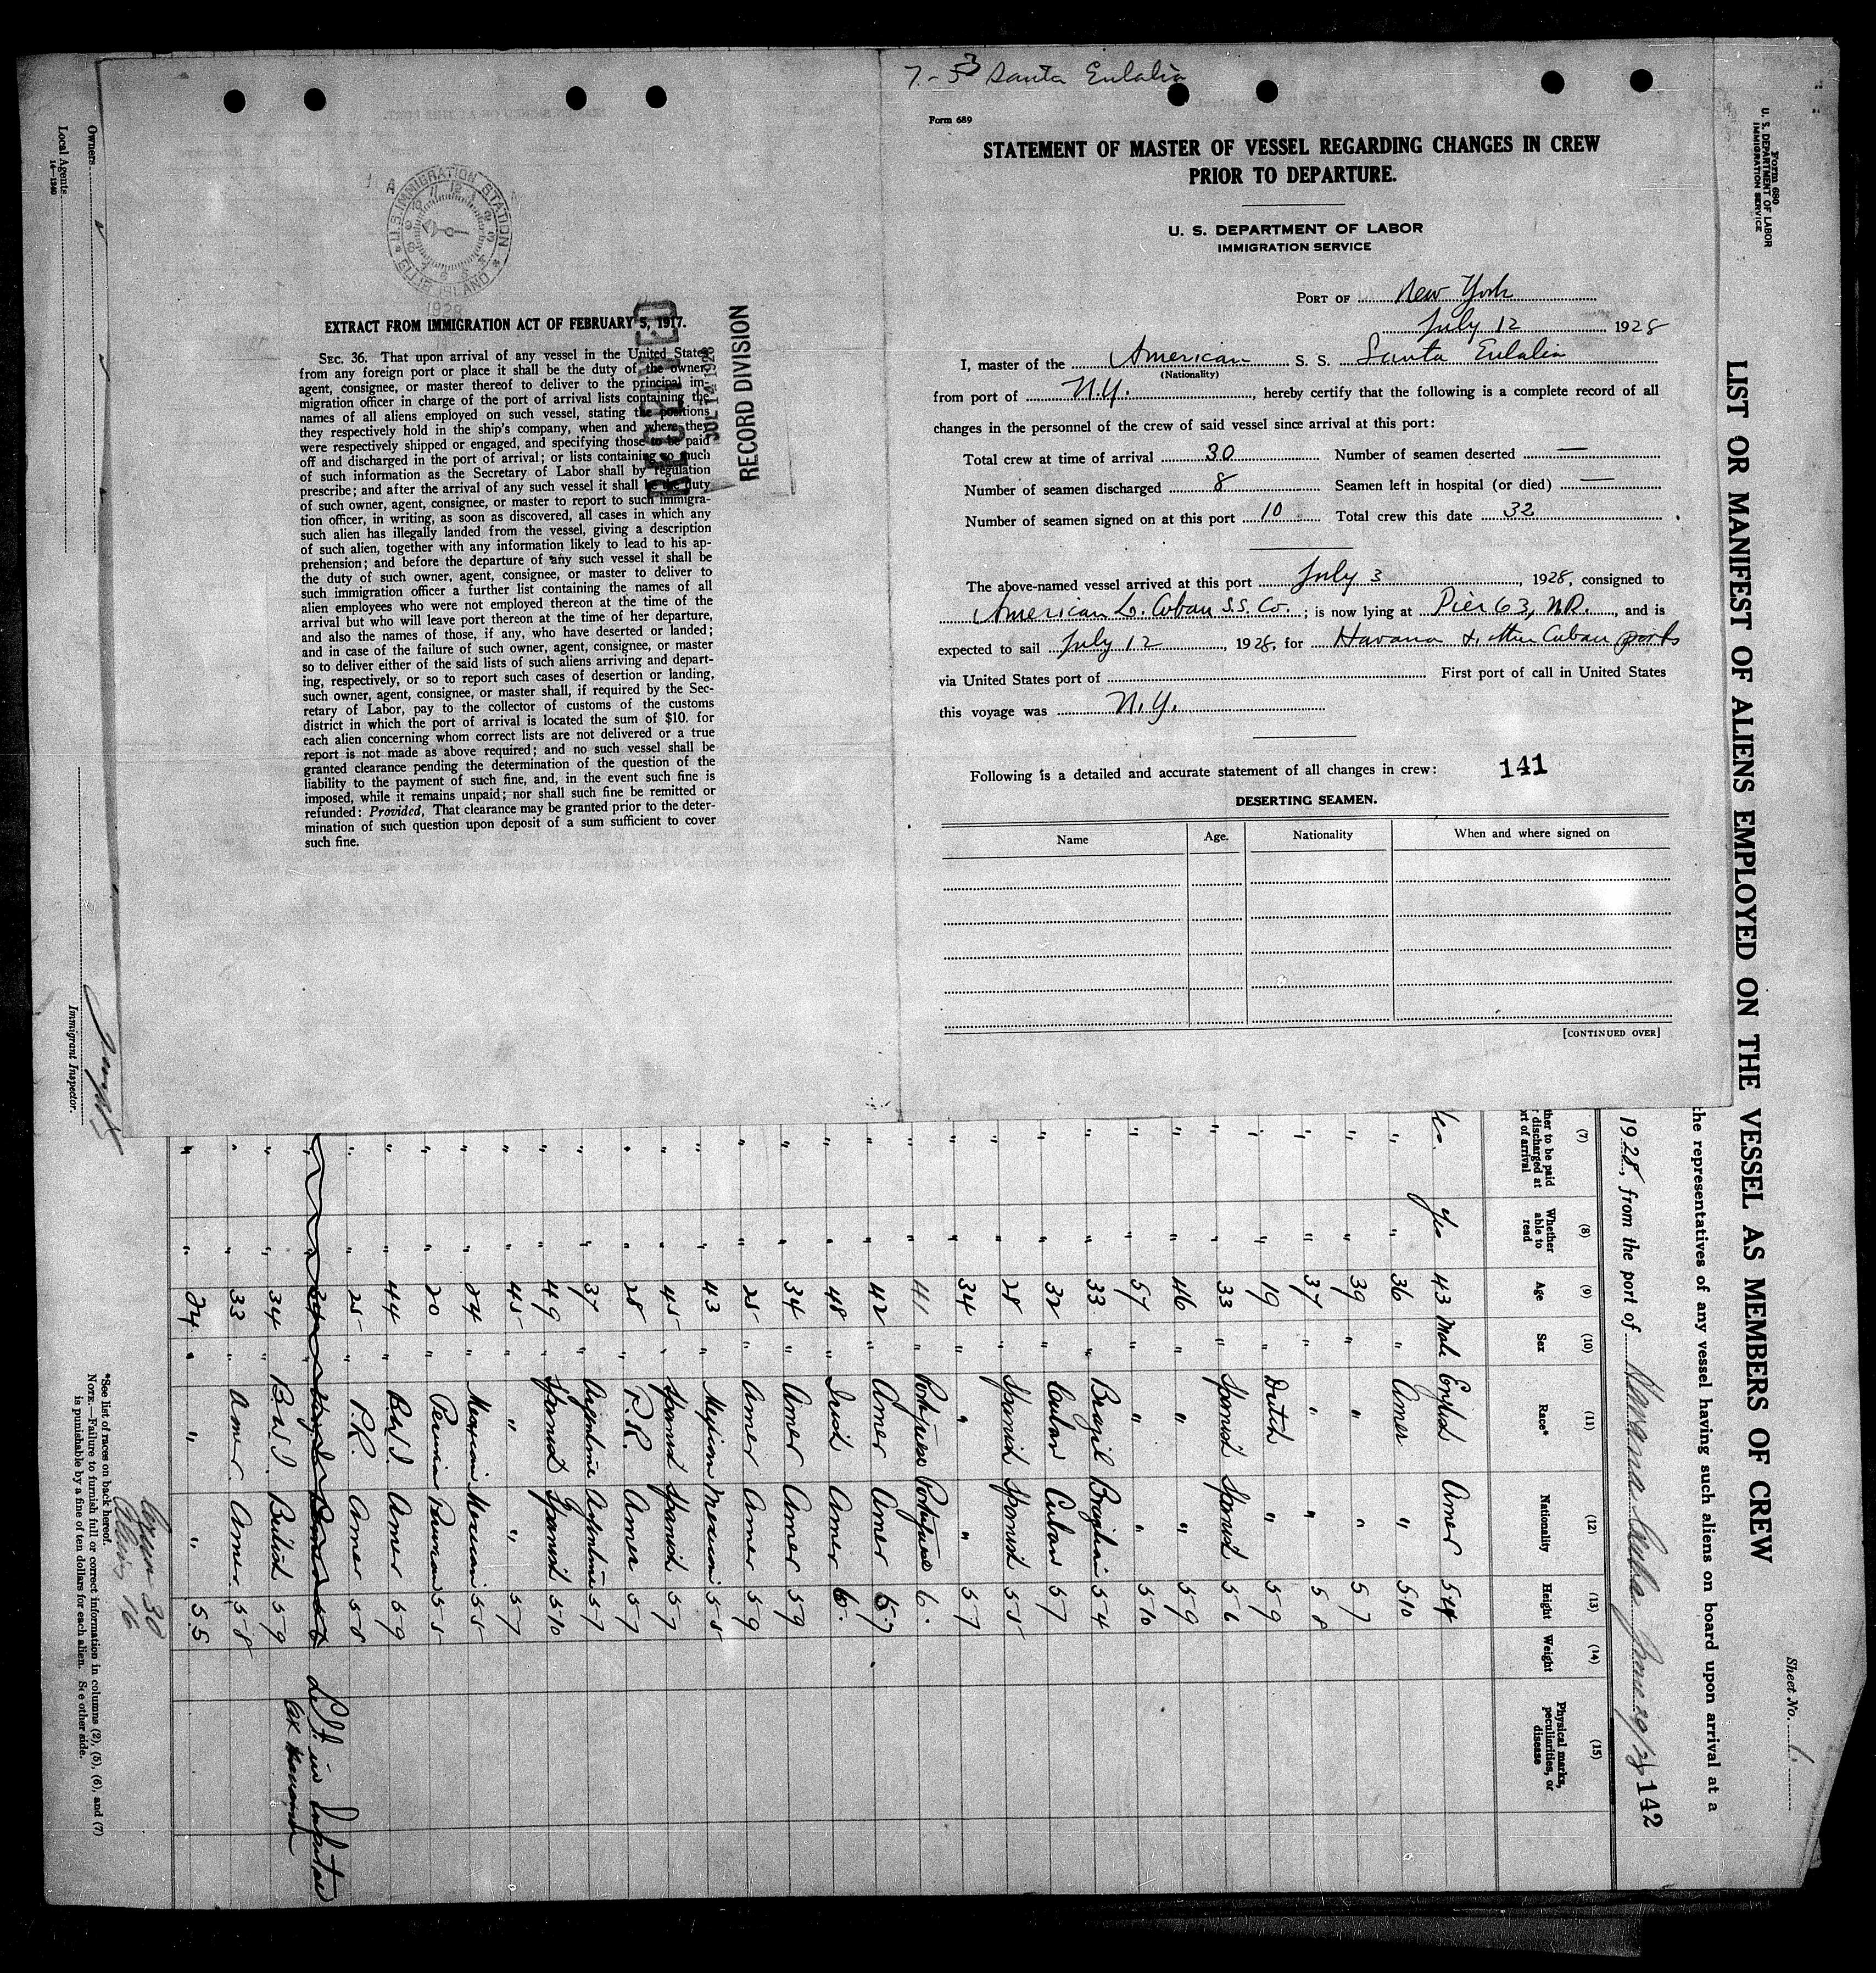 7-53 Santa Eulalia
Form 689
STATEMENT OF MASTER OF VESSEL REGARDING CHANGES IN CREW
PRIOR TO DEPARTURE.
U. S. DEPARTMENT OF LABOR
IMMIGRATION SERVICE
PORT OF New York
July 12 1928
I, master of the American S. S. Santa Eulalia
(Nationality)
from port of N.Y., hereby certify that the following is a complete record of all
changes in the personnel of the crew of said vessel since arrival at this port:
Total crew at time of arrival 30 Number of seamen deserted —
Number of seamen discharged 8 Seamen left in hospital (or died) —
Number of seamen signed on at this port 10 Total crew this date 32
The above-named vessel arrived at this port July 3, 1928, consigned to
American & Cuban S.S. Co.; is now lying at Pier 63, N.R., and is
expected to sail July 12, 1928, for Havana & other Cuban ports
via United States port of First port of call in United States
this voyage was N.Y.
Following is a detailed and accurate statement of all changes in crew: 141
DESERTING SEAMEN.
Name Age. Nationality When and where signed on
[CONTINUED OVER]
U.S. IMMIGRATION STATION
ELLIS ISLAND
1928
RECEIVED
JUL 14 1928
RECORD DIVISION
EXTRACT FROM IMMIGRATION ACT OF FEBRUARY 5, 1917.
SEC. 36. That upon arrival of any vessel in the United States
from any foreign port or place it shall be the duty of the owner,
agent, consignee, or master thereof to deliver to the principal im-
migration officer in charge of the port of arrival lists containing the
names of all aliens employed on such vessel, stating the positions
they respectively hold in the ship's company, when and where they
were respectively shipped or engaged, and specifying those to be paid
off and discharged in the port of arrival; or lists containing so much
of such information as the Secretary of Labor shall by regulation
prescribe; and after the arrival of any such vessel it shall be the duty
of such owner, agent, consignee, or master to report to such immigra-
tion officer, in writing, as soon as discovered, all cases in which any
such alien has illegally landed from the vessel, giving a description
of such alien, together with any information likely to lead to his ap-
prehension; and before the departure of any such vessel it shall be
the duty of such owner, agent, consignee, or master to deliver to
such immigration officer a further list containing the names of all
alien employees who were not employed thereon at the time of the
arrival but who will leave port thereon at the time of her departure,
and also the names of those, if any, who have deserted or landed;
and in case of the failure of such owner, agent, consignee, or master
so to deliver either of the said lists of such aliens arriving and depart-
ing, respectively, or so to report such cases of desertion or landing,
such owner, agent, consignee, or master shall, if required by the Sec-
retary of Labor, pay to the collector of customs of the customs
district in which the port of arrival is located the sum of $10. for
each alien concerning whom correct lists are not delivered or a true
report is not made as above required; and no such vessel shall be
granted clearance pending the determination of the question of the
liability to the payment of such fine, and, in the event such fine is
imposed, while it remains unpaid; nor shall such fine be remitted or
refunded: Provided, That clearance may be granted prior to the deter-
mination of such question upon deposit of a sum sufficient to cover
such fine.
Form 680
U. S. DEPARTMENT OF LABOR
IMMIGRATION SERVICE
Sheet No. 1.
LIST OR MANIFEST OF ALIENS EMPLOYED ON THE VESSEL AS MEMBERS OF CREW
the representatives of any vessel having such aliens on board upon arrival at a
1928, from the port of Havana Cuba June 29/28 142
(7) (8) (9) (10) (11) (12) (13) (14) (15)
ther to be paid
discharged at
rt of arrival
Whether able to read
Age
Sex
Race*
Nationality
Height
Weight
Physical marks, peculiarities, or disease
Yes. Yes 43 Male English Amer 5 4
" " 36 " Amer " 5 10
" " 39 " " " 5 7
" " 37 " " " 5 8
" " 19 " Dutch " 5 9
" " 33 " Spanish Spanish 5 6
" " 46 " " " 5 9
" " 57 " " " 5 10
" " 33 " Brazil Brazilian 5 4
" " 32 " Cuban Cuban 5 7
" " 28 " Spanish Spanish 5 5
" " 34 " " " 5 7
" " 41 " Portuguese Portuguese 6.
" " 42 " Amer Amer 5 7
" " 48 " Irish Amer 6.
" " 34 " Amer Amer 5 9
" " 25 " Amer Amer 5 9
" " 43 " Mexican Mexican 5 5
" " 45 " Spanish Spanish 5 7
" " 28 " P.R. Amer 5 7
" " 37 " Argentine Argentine 5 7
" " 49 " Spanish Spanish 5 10
" " 45 " " " 5 7
" " 24 " Mexican Mexican 5 5
" " 20 " Peruvian Peruvian 5 5
" " 44 " B.W.I. Amer 5 9
" " 25 " P.R. Amer 5 8
Left in Hospital
at Havana
" " 34 " B.W.I. British 5 9
" " 33 " Amer. Amer. 5 8
" " 24 " " " 5 5
Crew 30
Aliens 16
*See list of races on back hereof.
NOTE.—Failure to furnish full or correct information in columns (2), (5), (6), and (7)
is punishable by a fine of ten dollars for each alien. See other side.
Owners
Local Agents
14—1240
Immigrant Inspector.